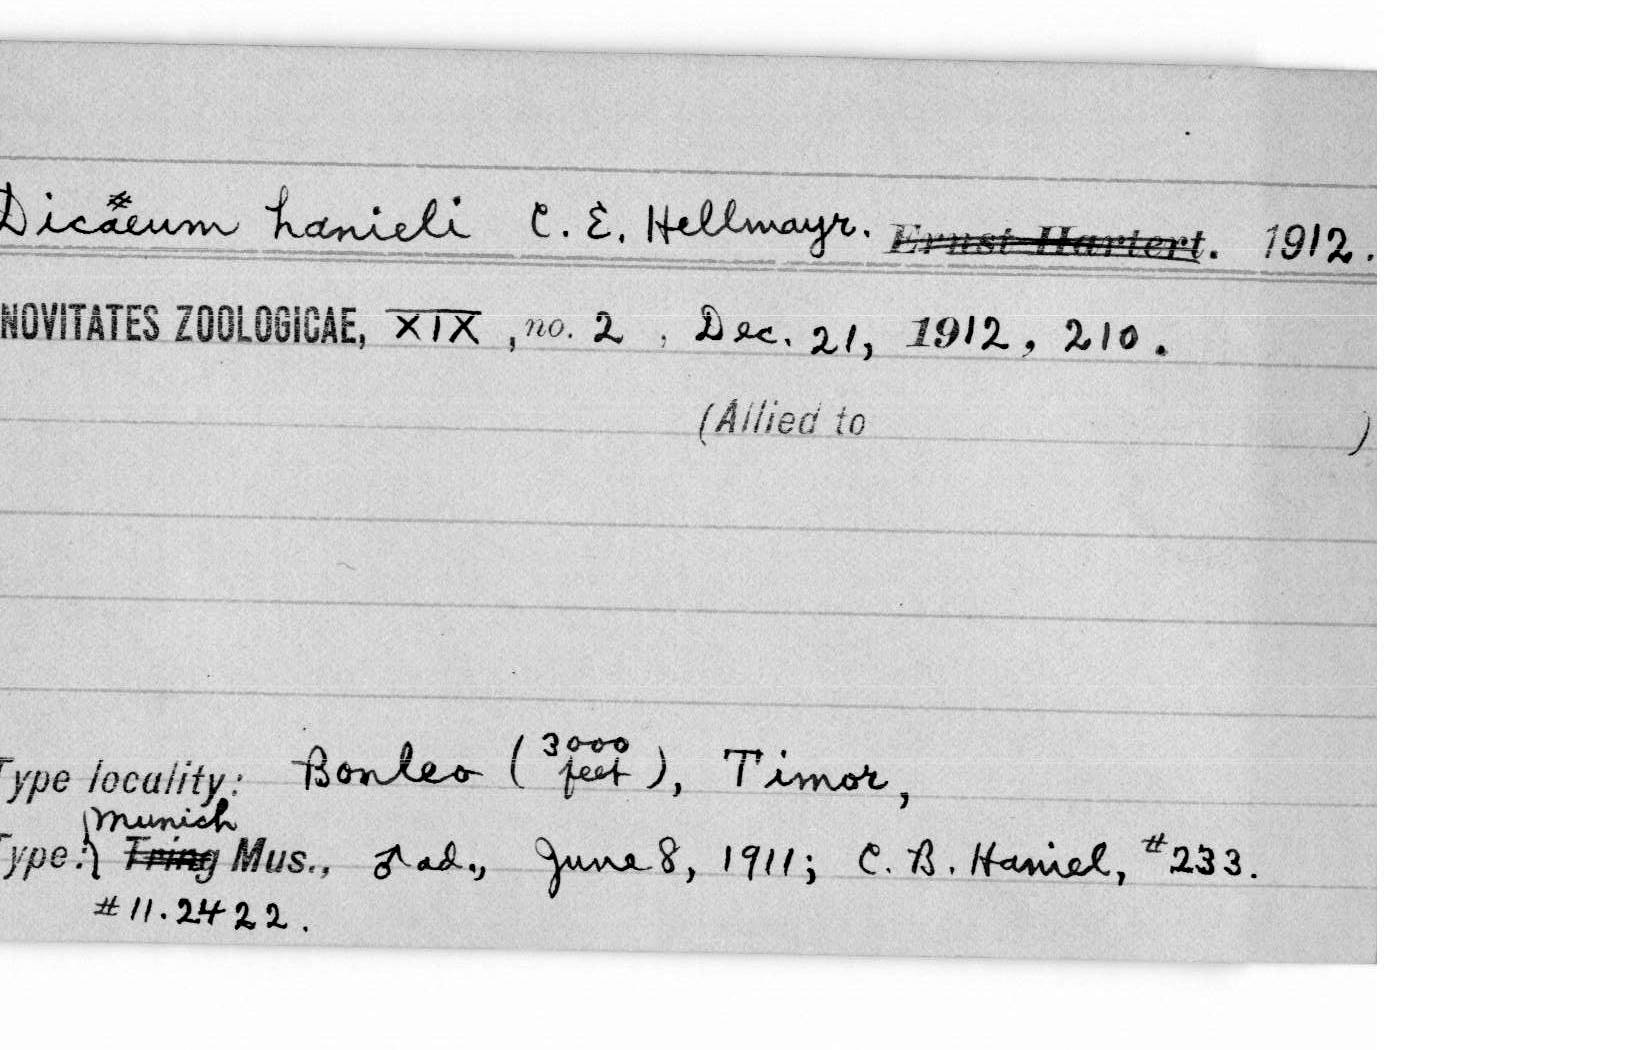 Dicaeum hanieli C. E. Hellmayr. Ernst Hartert. 1912.
NOVITATES ZOOLOGICAE, XIX, no. 2, Dec. 21, 1912, 210.
(Allied to )
Type locality: Bonleo (3000 feet), Timor,
Munich
Type: Tring Mus., ♂ ad., June 8, 1911; C. B. Haniel, #233.
#11.2422.